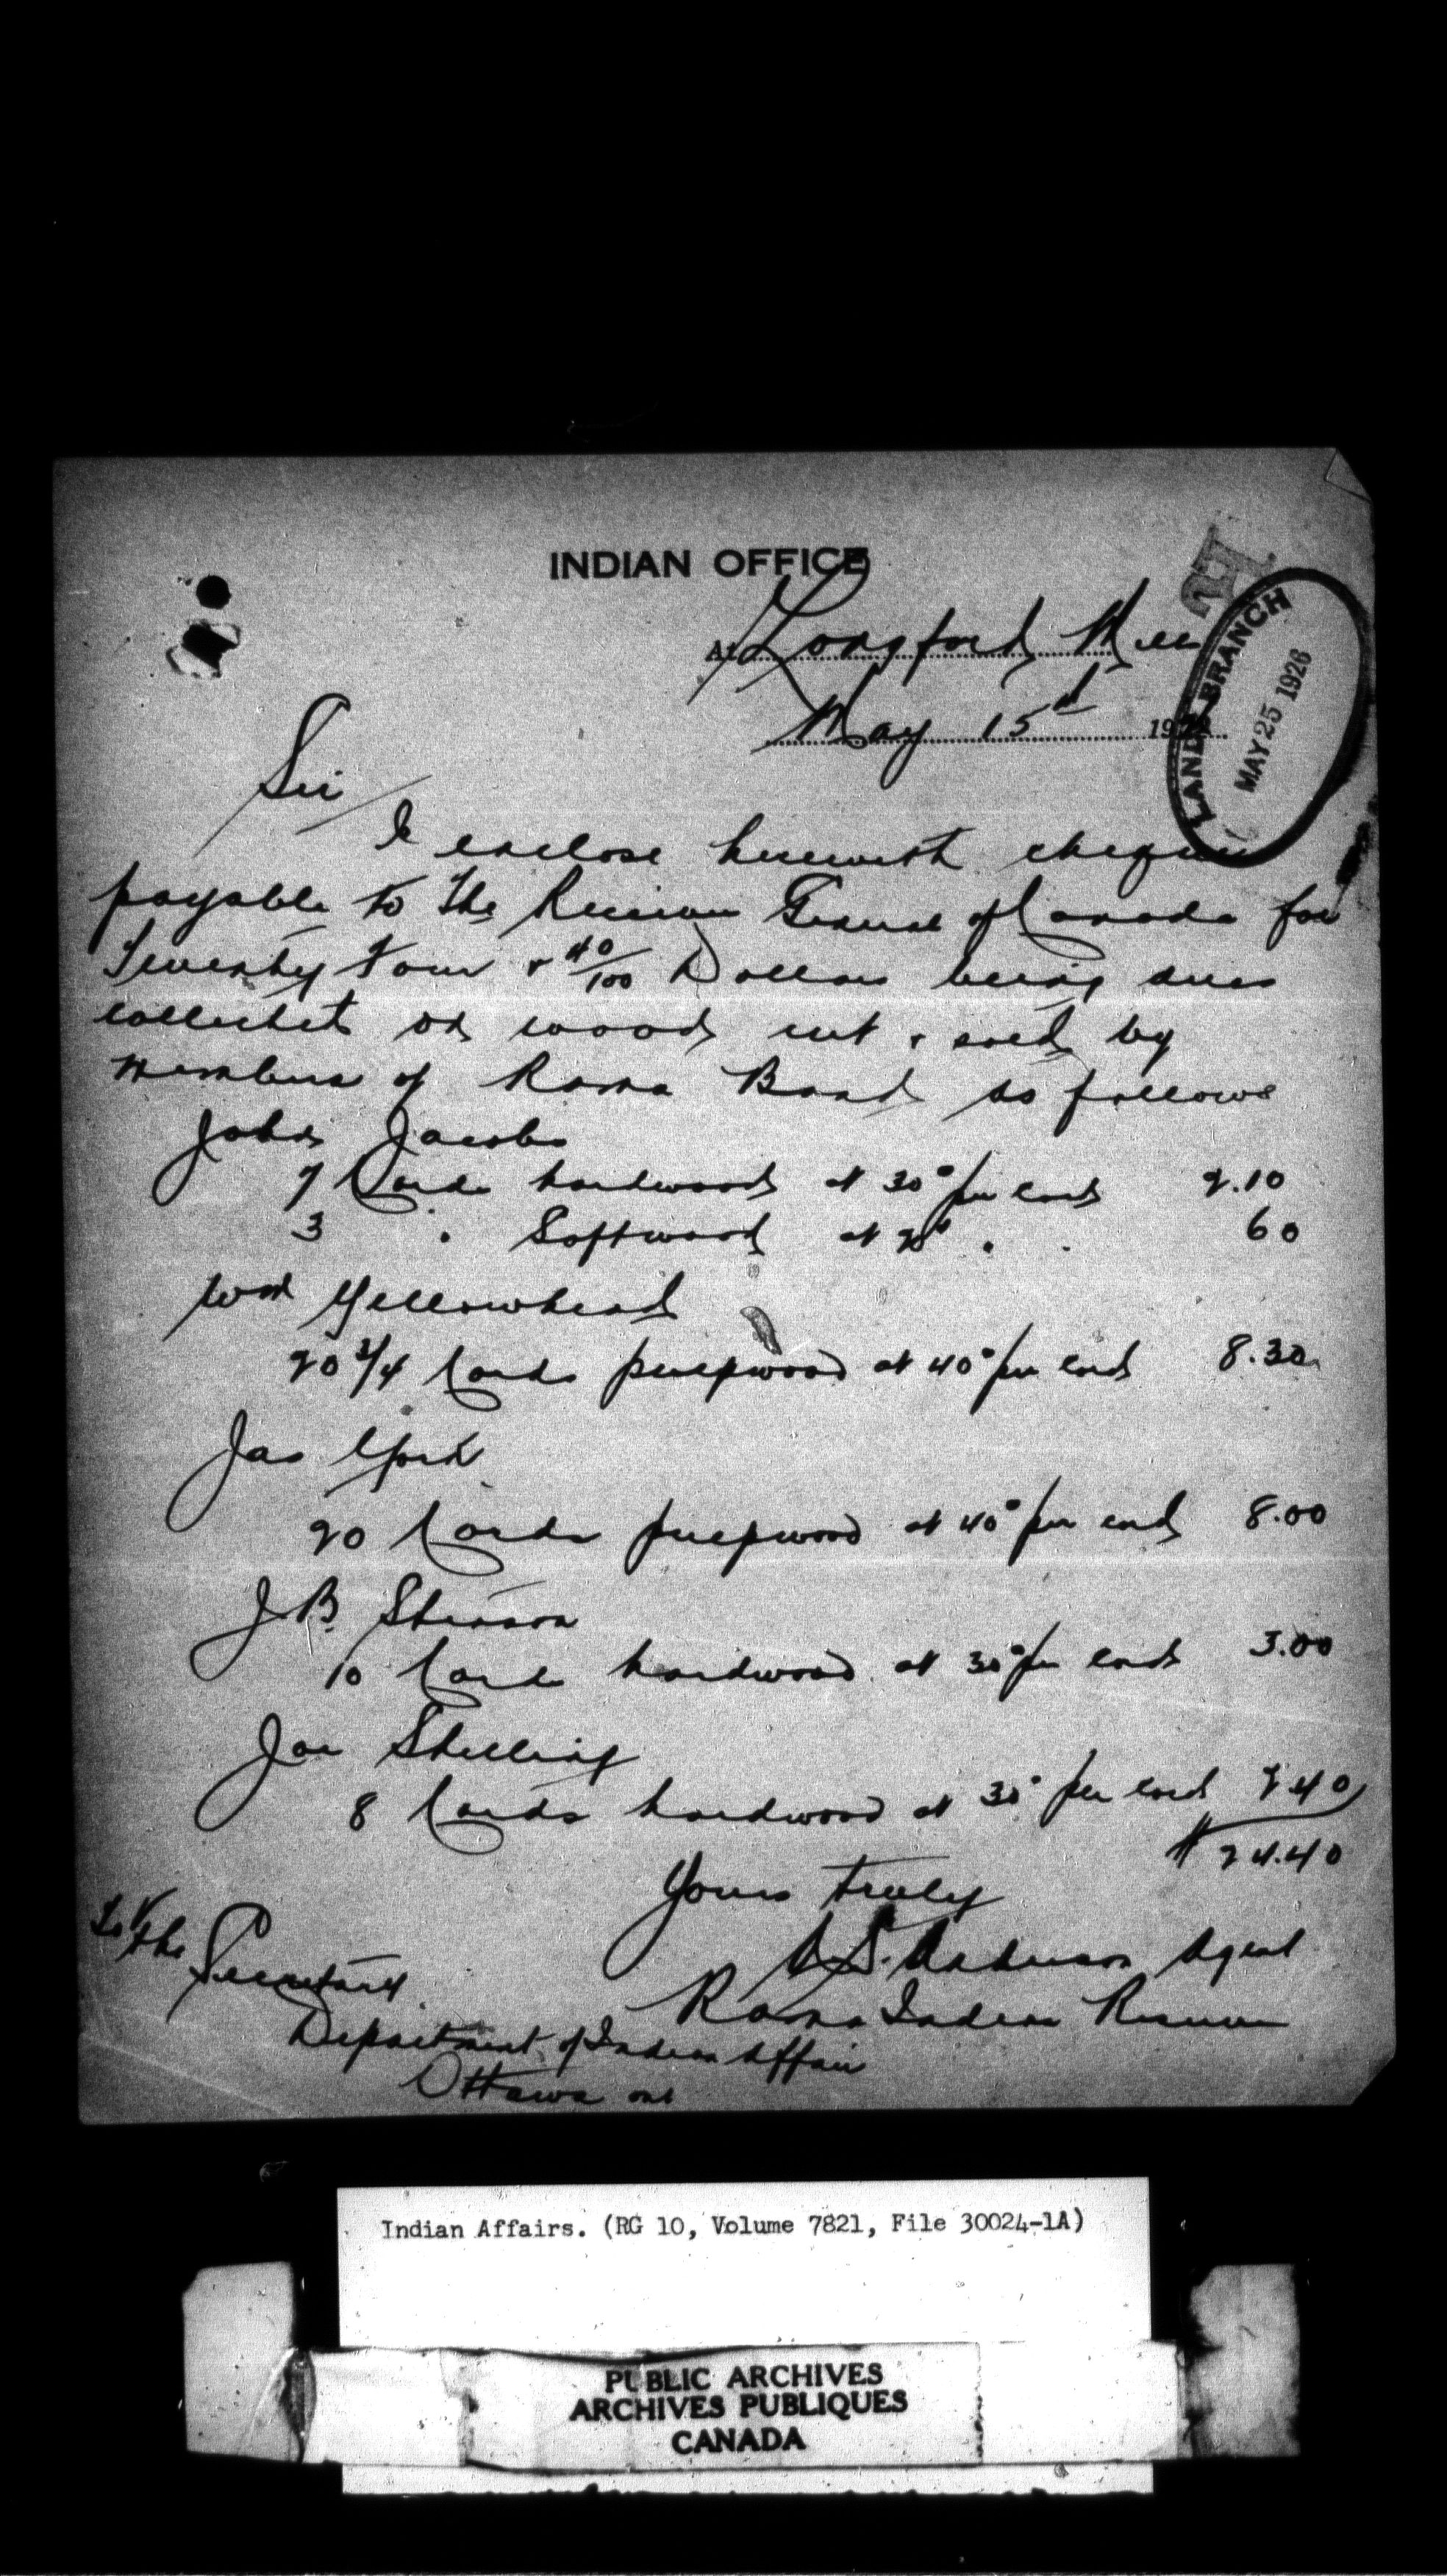 INDIAN OFFICE
At Longford Mills
May 15th 192
LAND BRANCH
MAY 25 1926
Sir
I enclose herewith cheque
payable to the Receiver General of Canada for
Twenty four & 40/100 Dollars being dues
collected on wood cut & sold by
members of Rama Band as follows
John Jacobs
7 Cords hardwood at 30c per cord 2.10
3 " Softwood at 20c " " 60
Wm Yellowhead
20 3/4 Cords pulpwood at 40c per cord 8.30
Jas York
20 Cords pulpwood at 40c per cord 8.00
J.B. Stinson
10 Cords hardwood at 30c per cord 3.00
Joe Shilling
8 Cords hardwood at 30c per cord 2.40
$24.40
Yours truly
A.S. Anderson Agent
Rama Indian Reserve
To the Secretary
Department of Indian Affairs
Ottawa Ont
Indian Affairs. (RG 10, Volume 7821, File 30024-1A)
PUBLIC ARCHIVES
ARCHIVES PUBLIQUES
CANADA